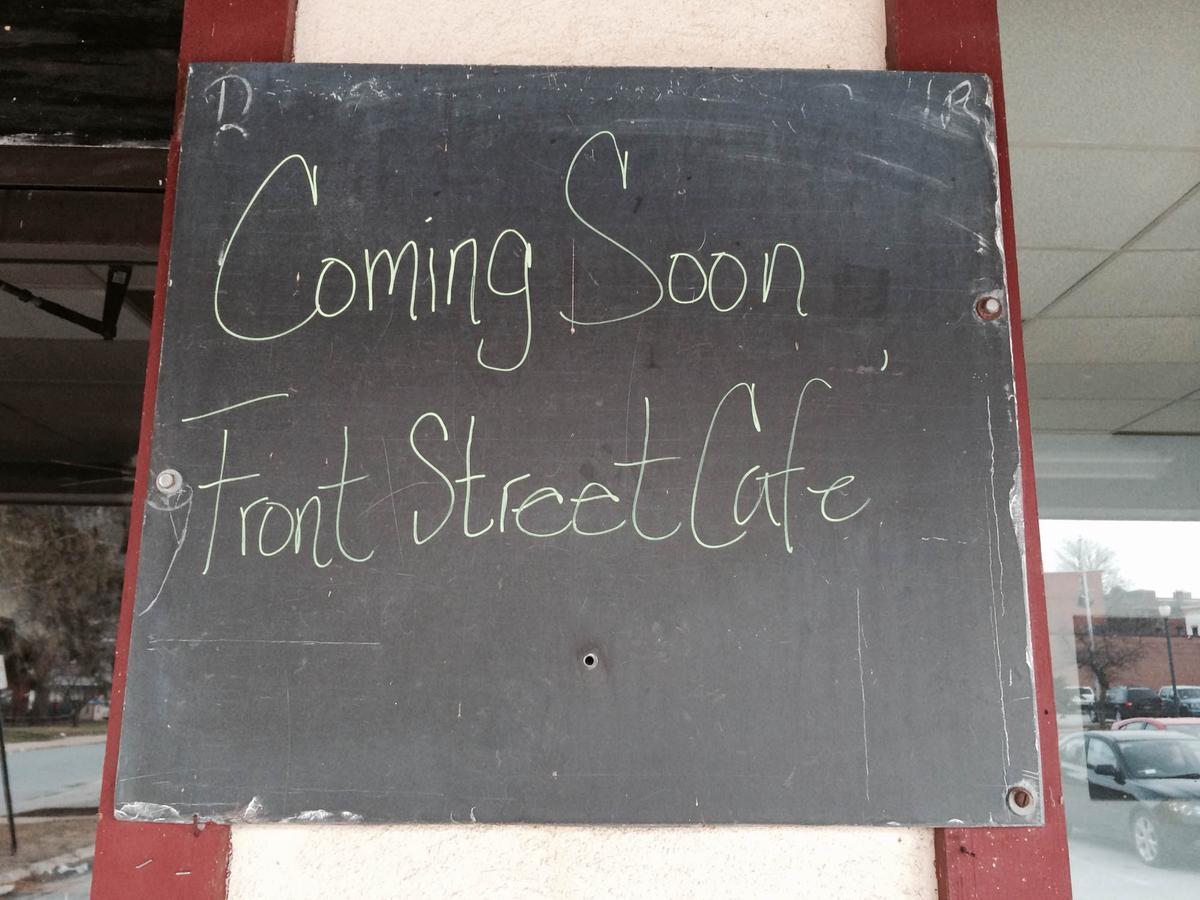 Coming Soon
Front Street Cafe